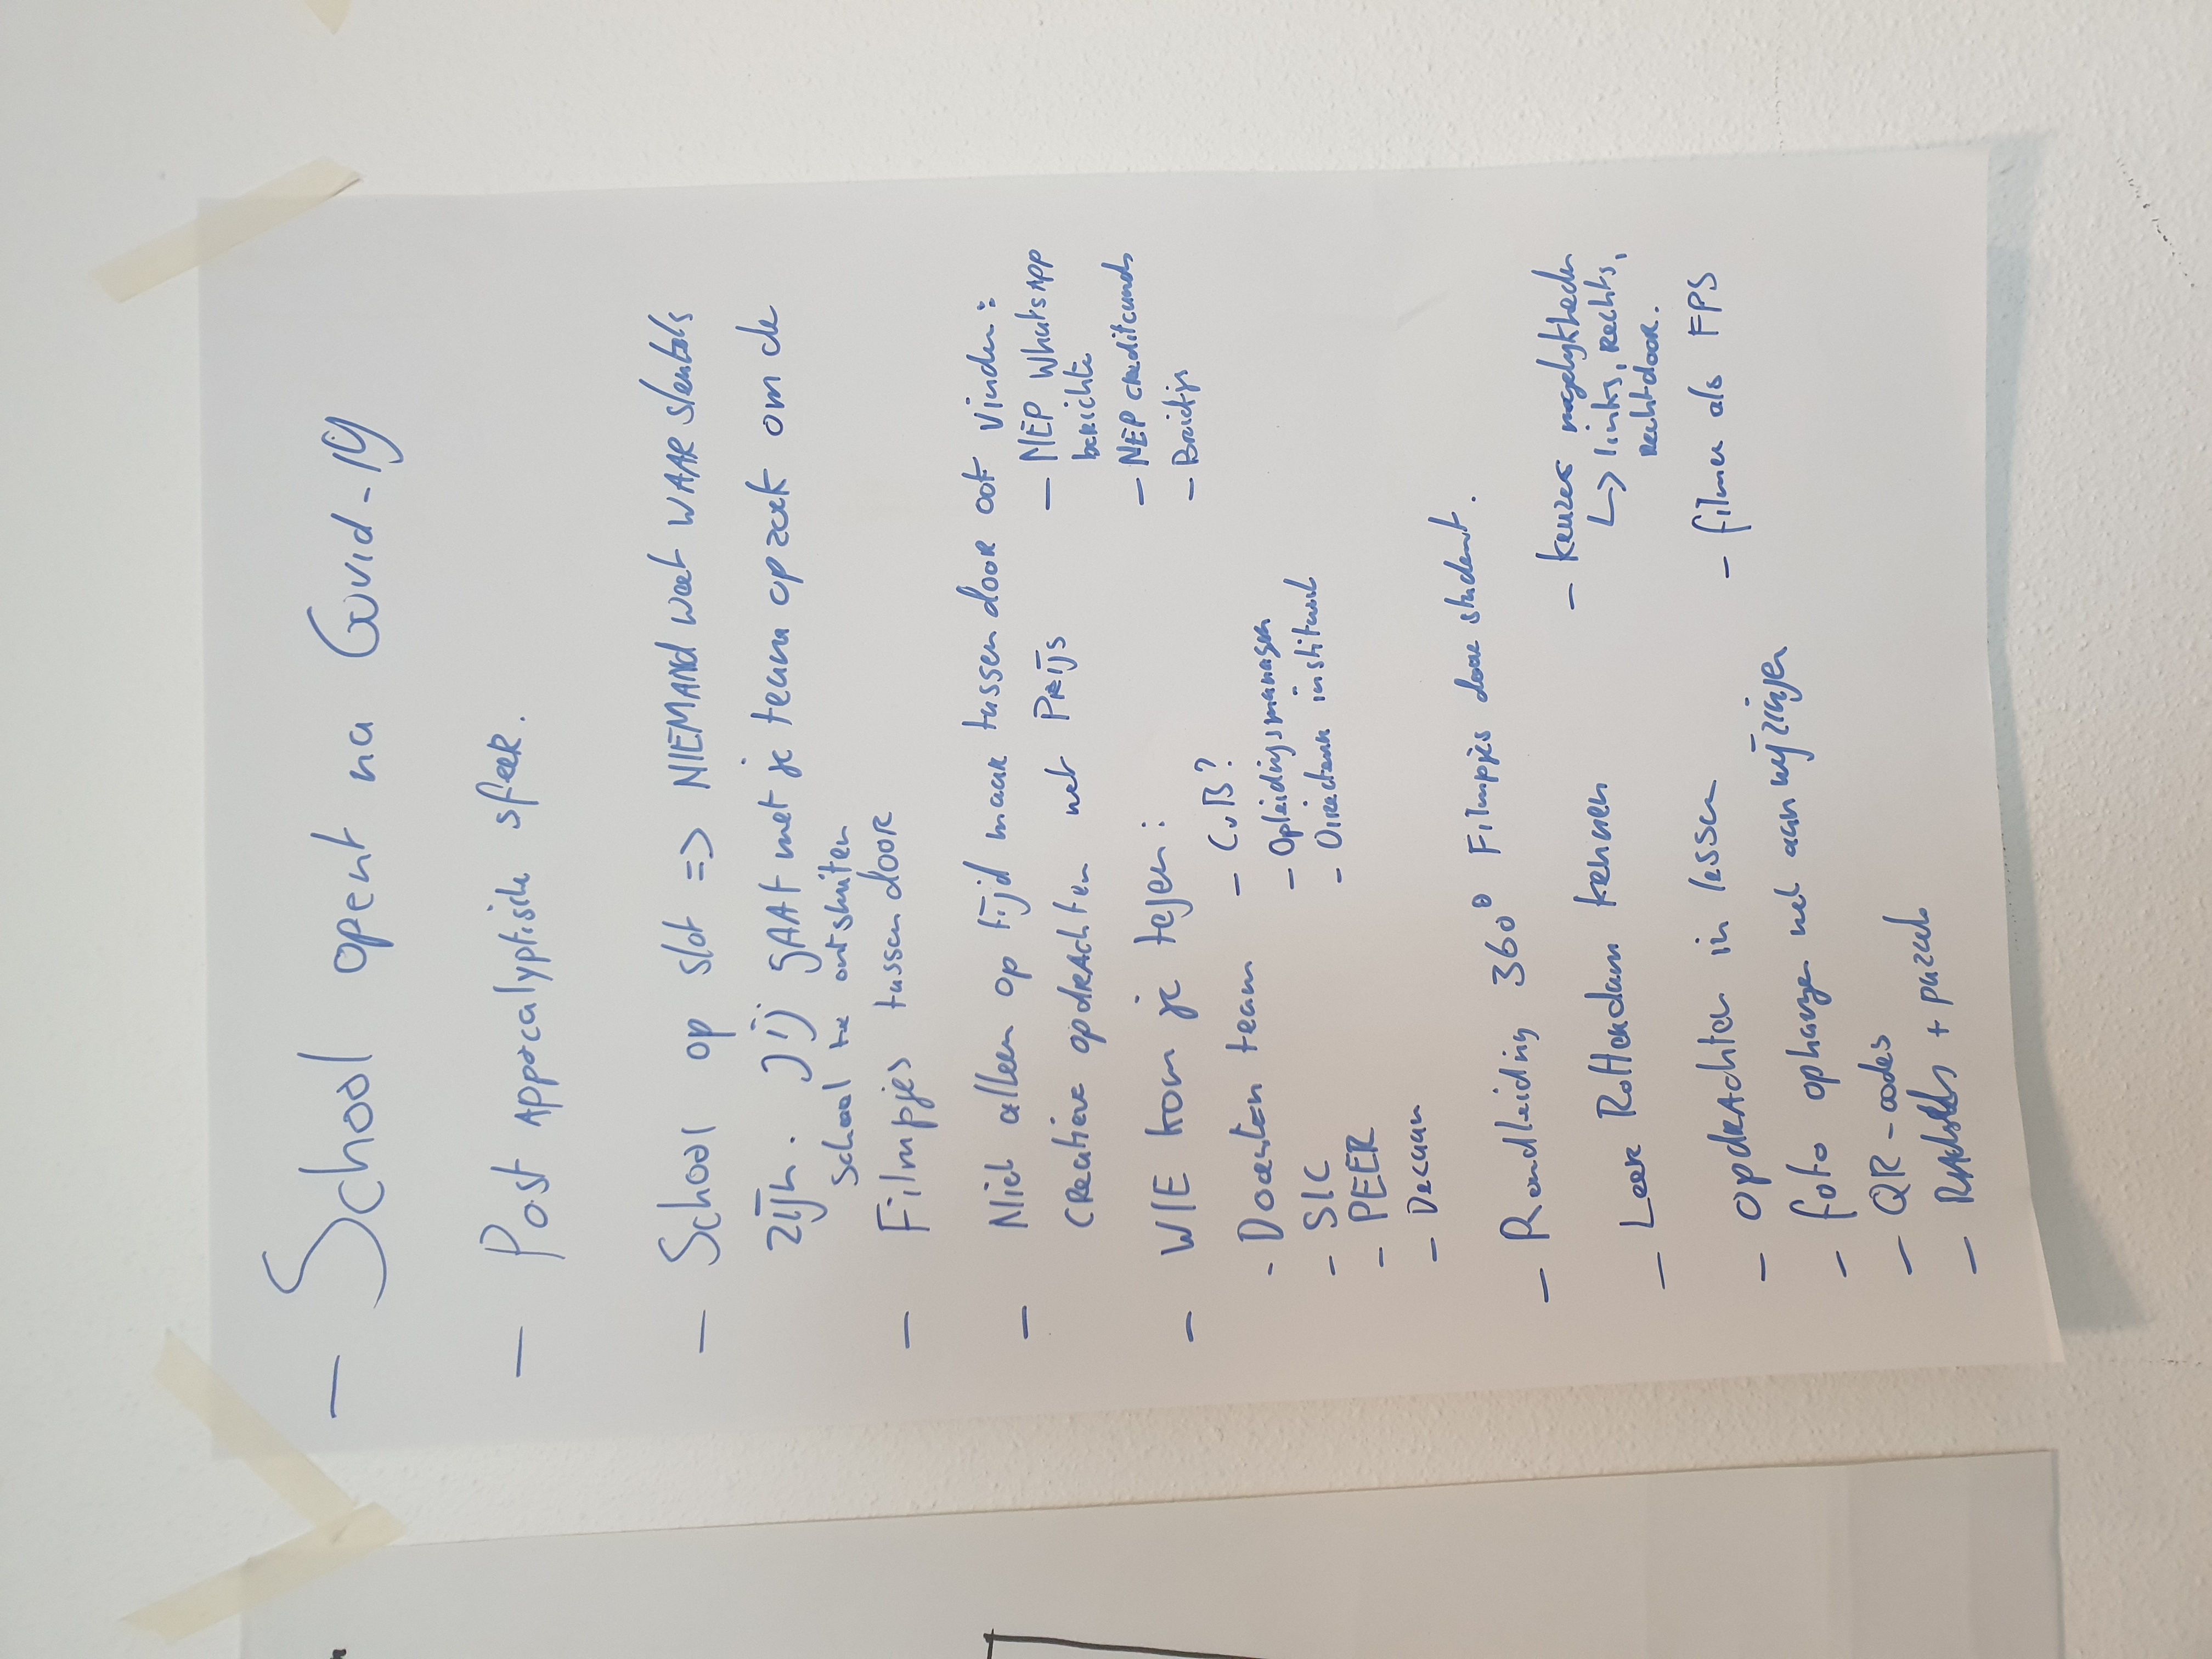 - School opent na Covid-19
- Post Appocalyptische sfeer.
- School op slot => NIEMAND weet WAAR sleutels
zijn. Jij gAAt met je team op zoek om de
school te ontsluiten
- Filmpjes tussendoor
- Niet alleen op tijd maar tussendoor ook vinden:
creatieve opdrachten met Prijs
- NEP WhatsApp
berichten
- NEP creditcards
- Briefjes
- WIE kom je tegen:
- Docenten team
- SLC
- PEER
- Decaan
- CvB?
- Opleidingsmanager
- Directeur instituut
- Rondleiding 360° Filmpjes door student.
- Leer Rotterdam kennen
- keuzes mogelijkheden
↳ links, rechts,
rechtdoor.
- filmen als FPS
- opdrachten in lessen
- foto ophangen met aanwijzingen
- QR-codes
- RAdsels + puzzels